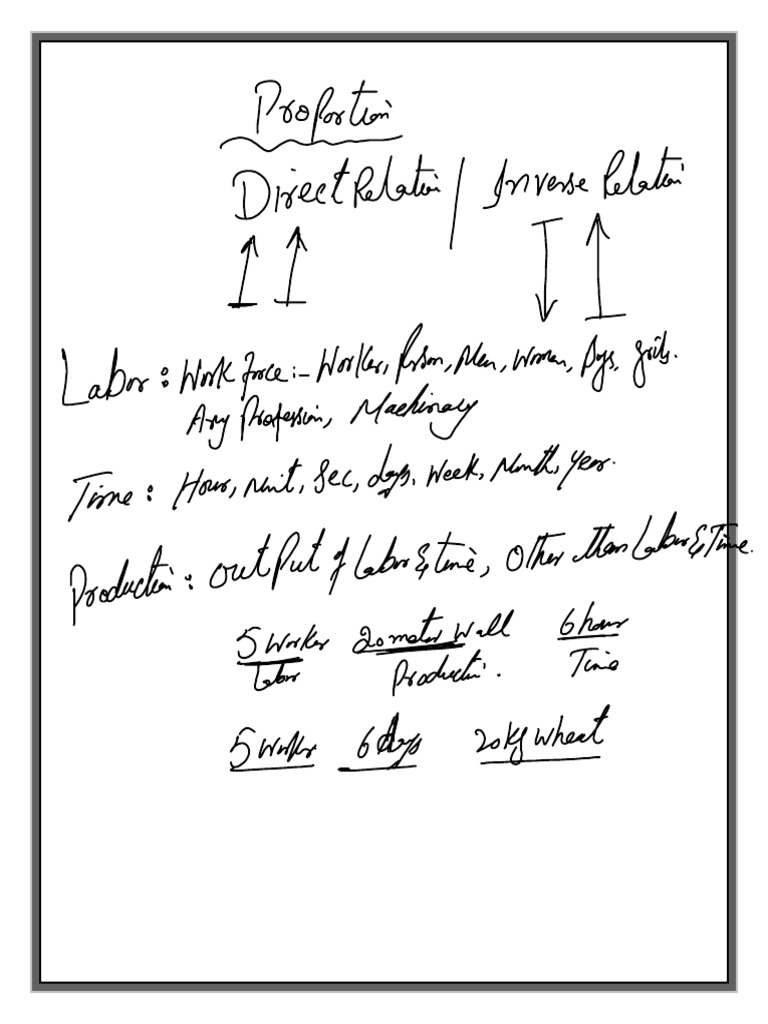 Proportion
Direct Relation / Inverse Relation
Labor : Work force :- Worker, Person, Men, Women, Boys, girls.
Any Profession, Machinary
Time : Hour, Minit, Sec, days, Week, Month, Year.
Production : Out Put of Labor & time, Other than Labor & Time.
5 Worker 20 meter Wall 6 hour
Labor Production. Time
5 Worker 6 days 20 Kg Wheat